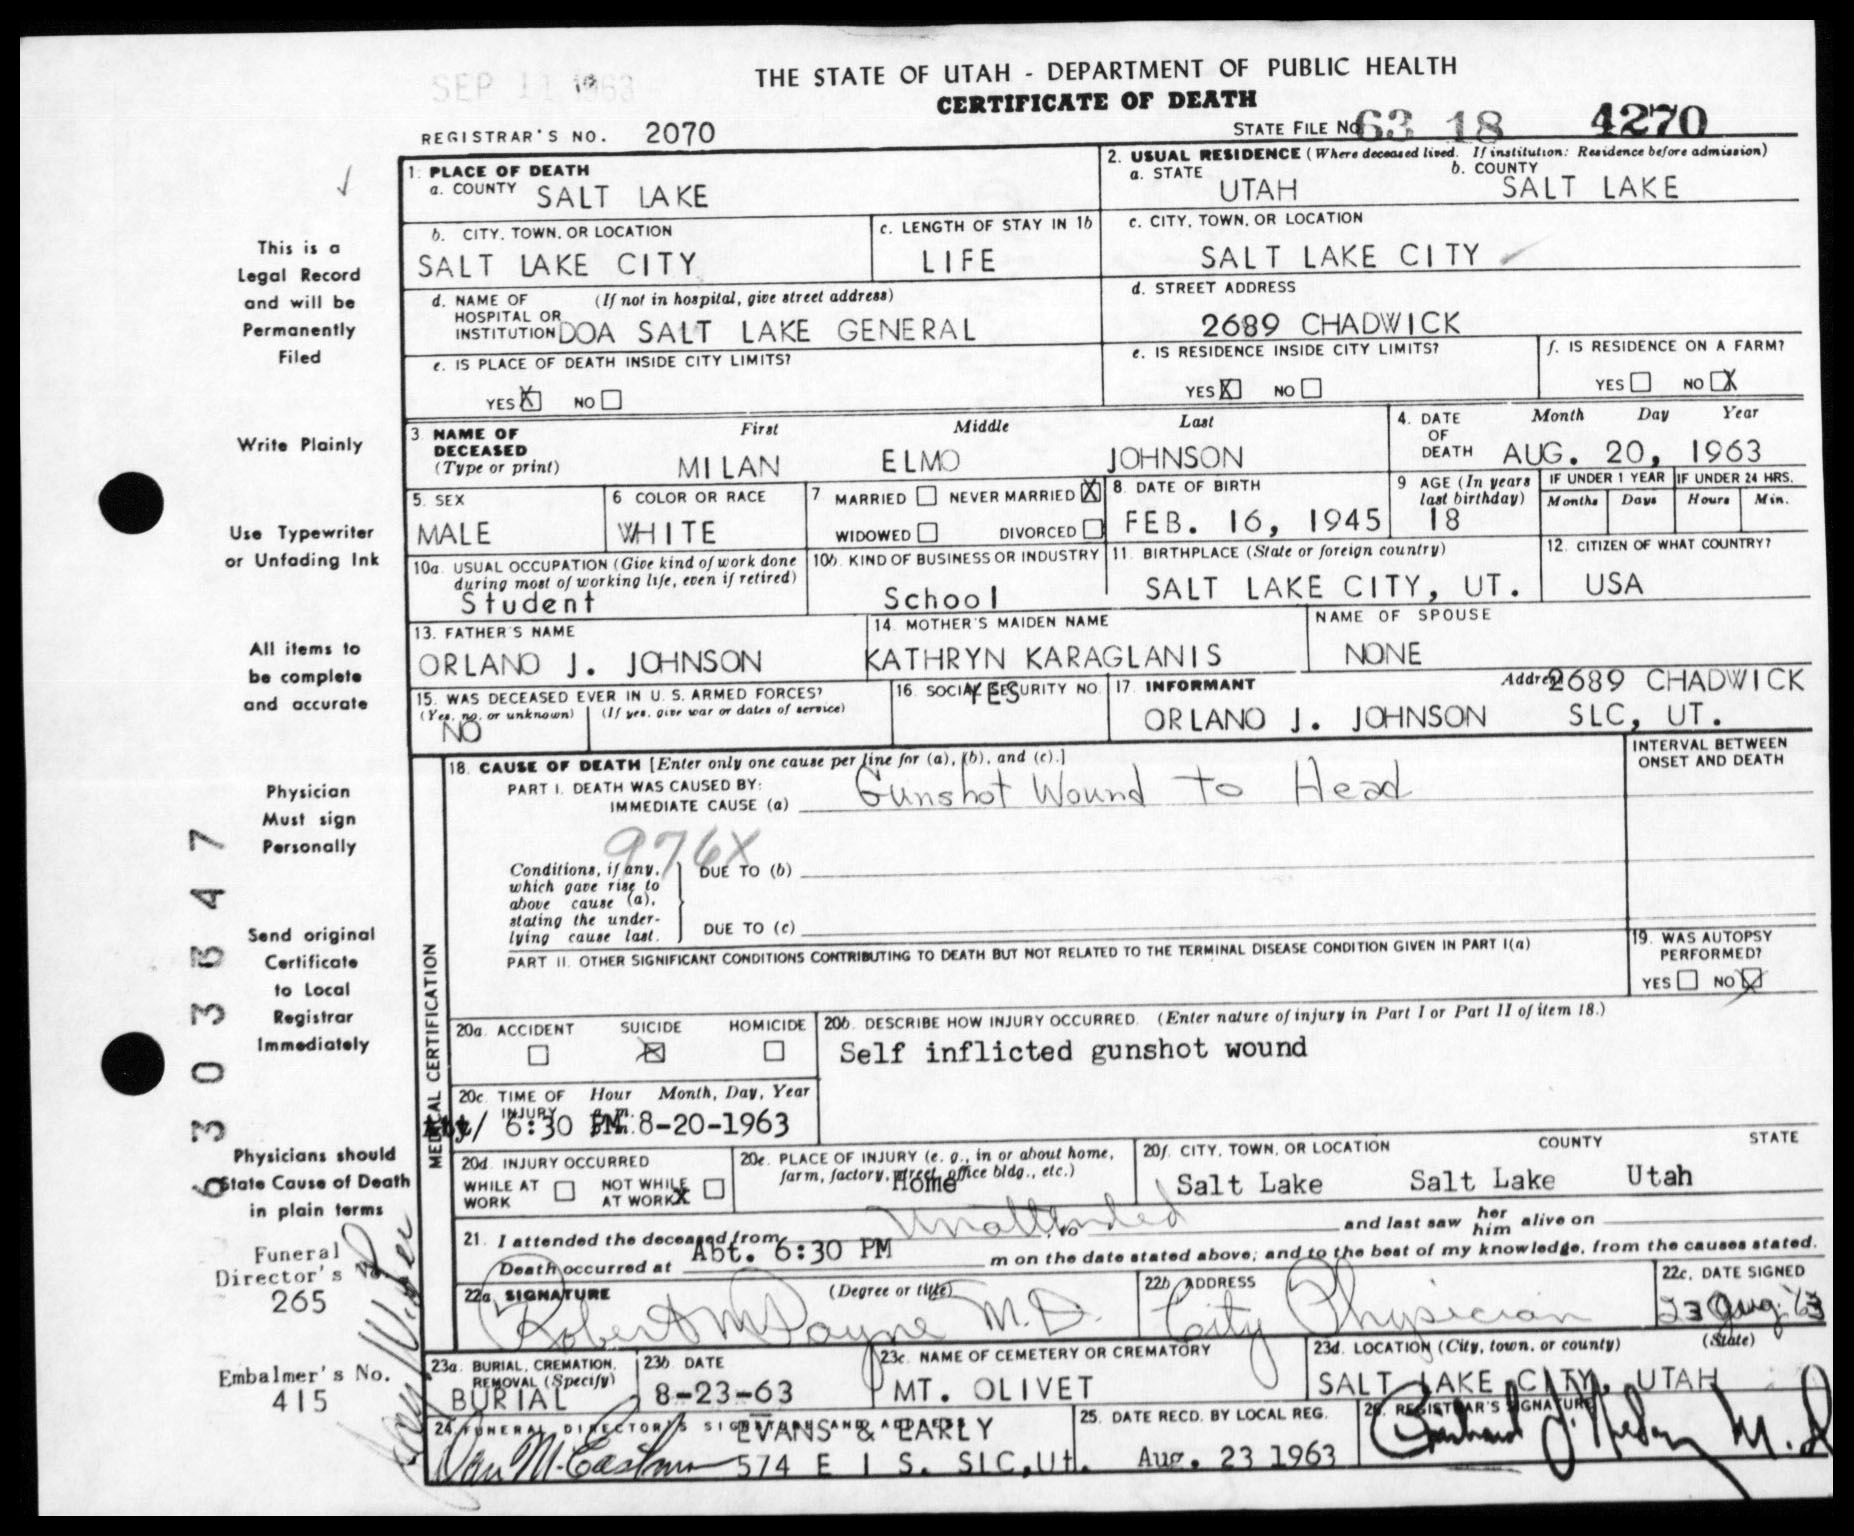 SEP 11 1963
THE STATE OF UTAH - DEPARTMENT OF PUBLIC HEALTH
CERTIFICATE OF DEATH
REGISTRAR'S NO. 2070
STATE FILE NO. 63 18 4270
1. PLACE OF DEATH
a. COUNTY SALT LAKE
2. USUAL RESIDENCE (Where deceased lived. If institution: Residence before admission)
a. STATE UTAH b. COUNTY SALT LAKE
b. CITY, TOWN, OR LOCATION SALT LAKE CITY
c. LENGTH OF STAY IN 1b LIFE
c. CITY, TOWN, OR LOCATION SALT LAKE CITY
d. NAME OF HOSPITAL OR INSTITUTION (If not in hospital, give street address) DOA SALT LAKE GENERAL
d. STREET ADDRESS 2689 CHADWICK
e. IS PLACE OF DEATH INSIDE CITY LIMITS? YES X NO
e. IS RESIDENCE INSIDE CITY LIMITS? YES X NO
f. IS RESIDENCE ON A FARM? YES NO X
3. NAME OF DECEASED (Type or print) First Middle Last
MILAN ELMO JOHNSON
4. DATE OF DEATH Month Day Year
AUG. 20, 1963
5. SEX MALE
6. COLOR OR RACE WHITE
7. MARRIED NEVER MARRIED X WIDOWED DIVORCED
8. DATE OF BIRTH FEB. 16, 1945
9. AGE (In years last birthday) 18
IF UNDER 1 YEAR Months Days
IF UNDER 24 HRS. Hours Min.
10a. USUAL OCCUPATION (Give kind of work done during most of working life, even if retired) Student
10b. KIND OF BUSINESS OR INDUSTRY School
11. BIRTHPLACE (State or foreign country) SALT LAKE CITY, UT.
12. CITIZEN OF WHAT COUNTRY? USA
13. FATHER'S NAME ORLANO J. JOHNSON
14. MOTHER'S MAIDEN NAME KATHRYN KARAGLANIS
NAME OF SPOUSE NONE
15. WAS DECEASED EVER IN U. S. ARMED FORCES? (Yes, no, or unknown) (If yes, give war or dates of service) NO
16. SOCIAL SECURITY NO. YES
17. INFORMANT ORLANO J. JOHNSON Address 2689 CHADWICK SLC, UT.
MEDICAL CERTIFICATION
18. CAUSE OF DEATH [Enter only one cause per line for (a), (b), and (c).]
INTERVAL BETWEEN ONSET AND DEATH
PART I. DEATH WAS CAUSED BY:
IMMEDIATE CAUSE (a) Gunshot Wound to Head
976X
Conditions, if any, which gave rise to above cause (a), stating the underlying cause last.
DUE TO (b)
DUE TO (c)
PART II. OTHER SIGNIFICANT CONDITIONS CONTRIBUTING TO DEATH BUT NOT RELATED TO THE TERMINAL DISEASE CONDITION GIVEN IN PART I(a)
19. WAS AUTOPSY PERFORMED? YES NO X
20a. ACCIDENT SUICIDE X HOMICIDE
20b. DESCRIBE HOW INJURY OCCURRED. (Enter nature of injury in Part I or Part II of item 18.)
Self inflicted gunshot wound
20c. TIME OF INJURY Hour Month, Day, Year
6:30 PM 8-20-1963
20d. INJURY OCCURRED WHILE AT WORK NOT WHILE AT WORK X
20e. PLACE OF INJURY (e. g., in or about home, farm, factory, street, office bldg., etc.) Home
20f. CITY, TOWN, OR LOCATION COUNTY STATE
Salt Lake Salt Lake Utah
21. I attended the deceased from Unattended to and last saw her him alive on
Death occurred at Abt. 6:30 PM m on the date stated above; and to the best of my knowledge, from the causes stated.
22a. SIGNATURE (Degree or title) Robert M Payne M.D.
22b. ADDRESS City Physician
22c. DATE SIGNED 23 Aug '63
23a. BURIAL, CREMATION, REMOVAL (Specify) BURIAL
23b. DATE 8-23-63
23c. NAME OF CEMETERY OR CREMATORY MT. OLIVET
23d. LOCATION (City, town, or county) (State) SALT LAKE CITY, UTAH
24. FUNERAL DIRECTOR'S SIGNATURE AND ADDRESS EVANS & EARLY
574 E I S. SLC, Ut.
25. DATE RECD. BY LOCAL REG. Aug. 23 1963
26. REGISTRAR'S SIGNATURE M.D
This is a
Legal Record
and will be
Permanently
Filed
Write Plainly
Use Typewriter
or Unfading Ink
All items to
be complete
and accurate
Physician
Must sign
Personally
Send original
Certificate
to Local
Registrar
Immediately
Physicians should
State Cause of Death
in plain terms
Funeral
Director's No.
265
Embalmer's No.
415